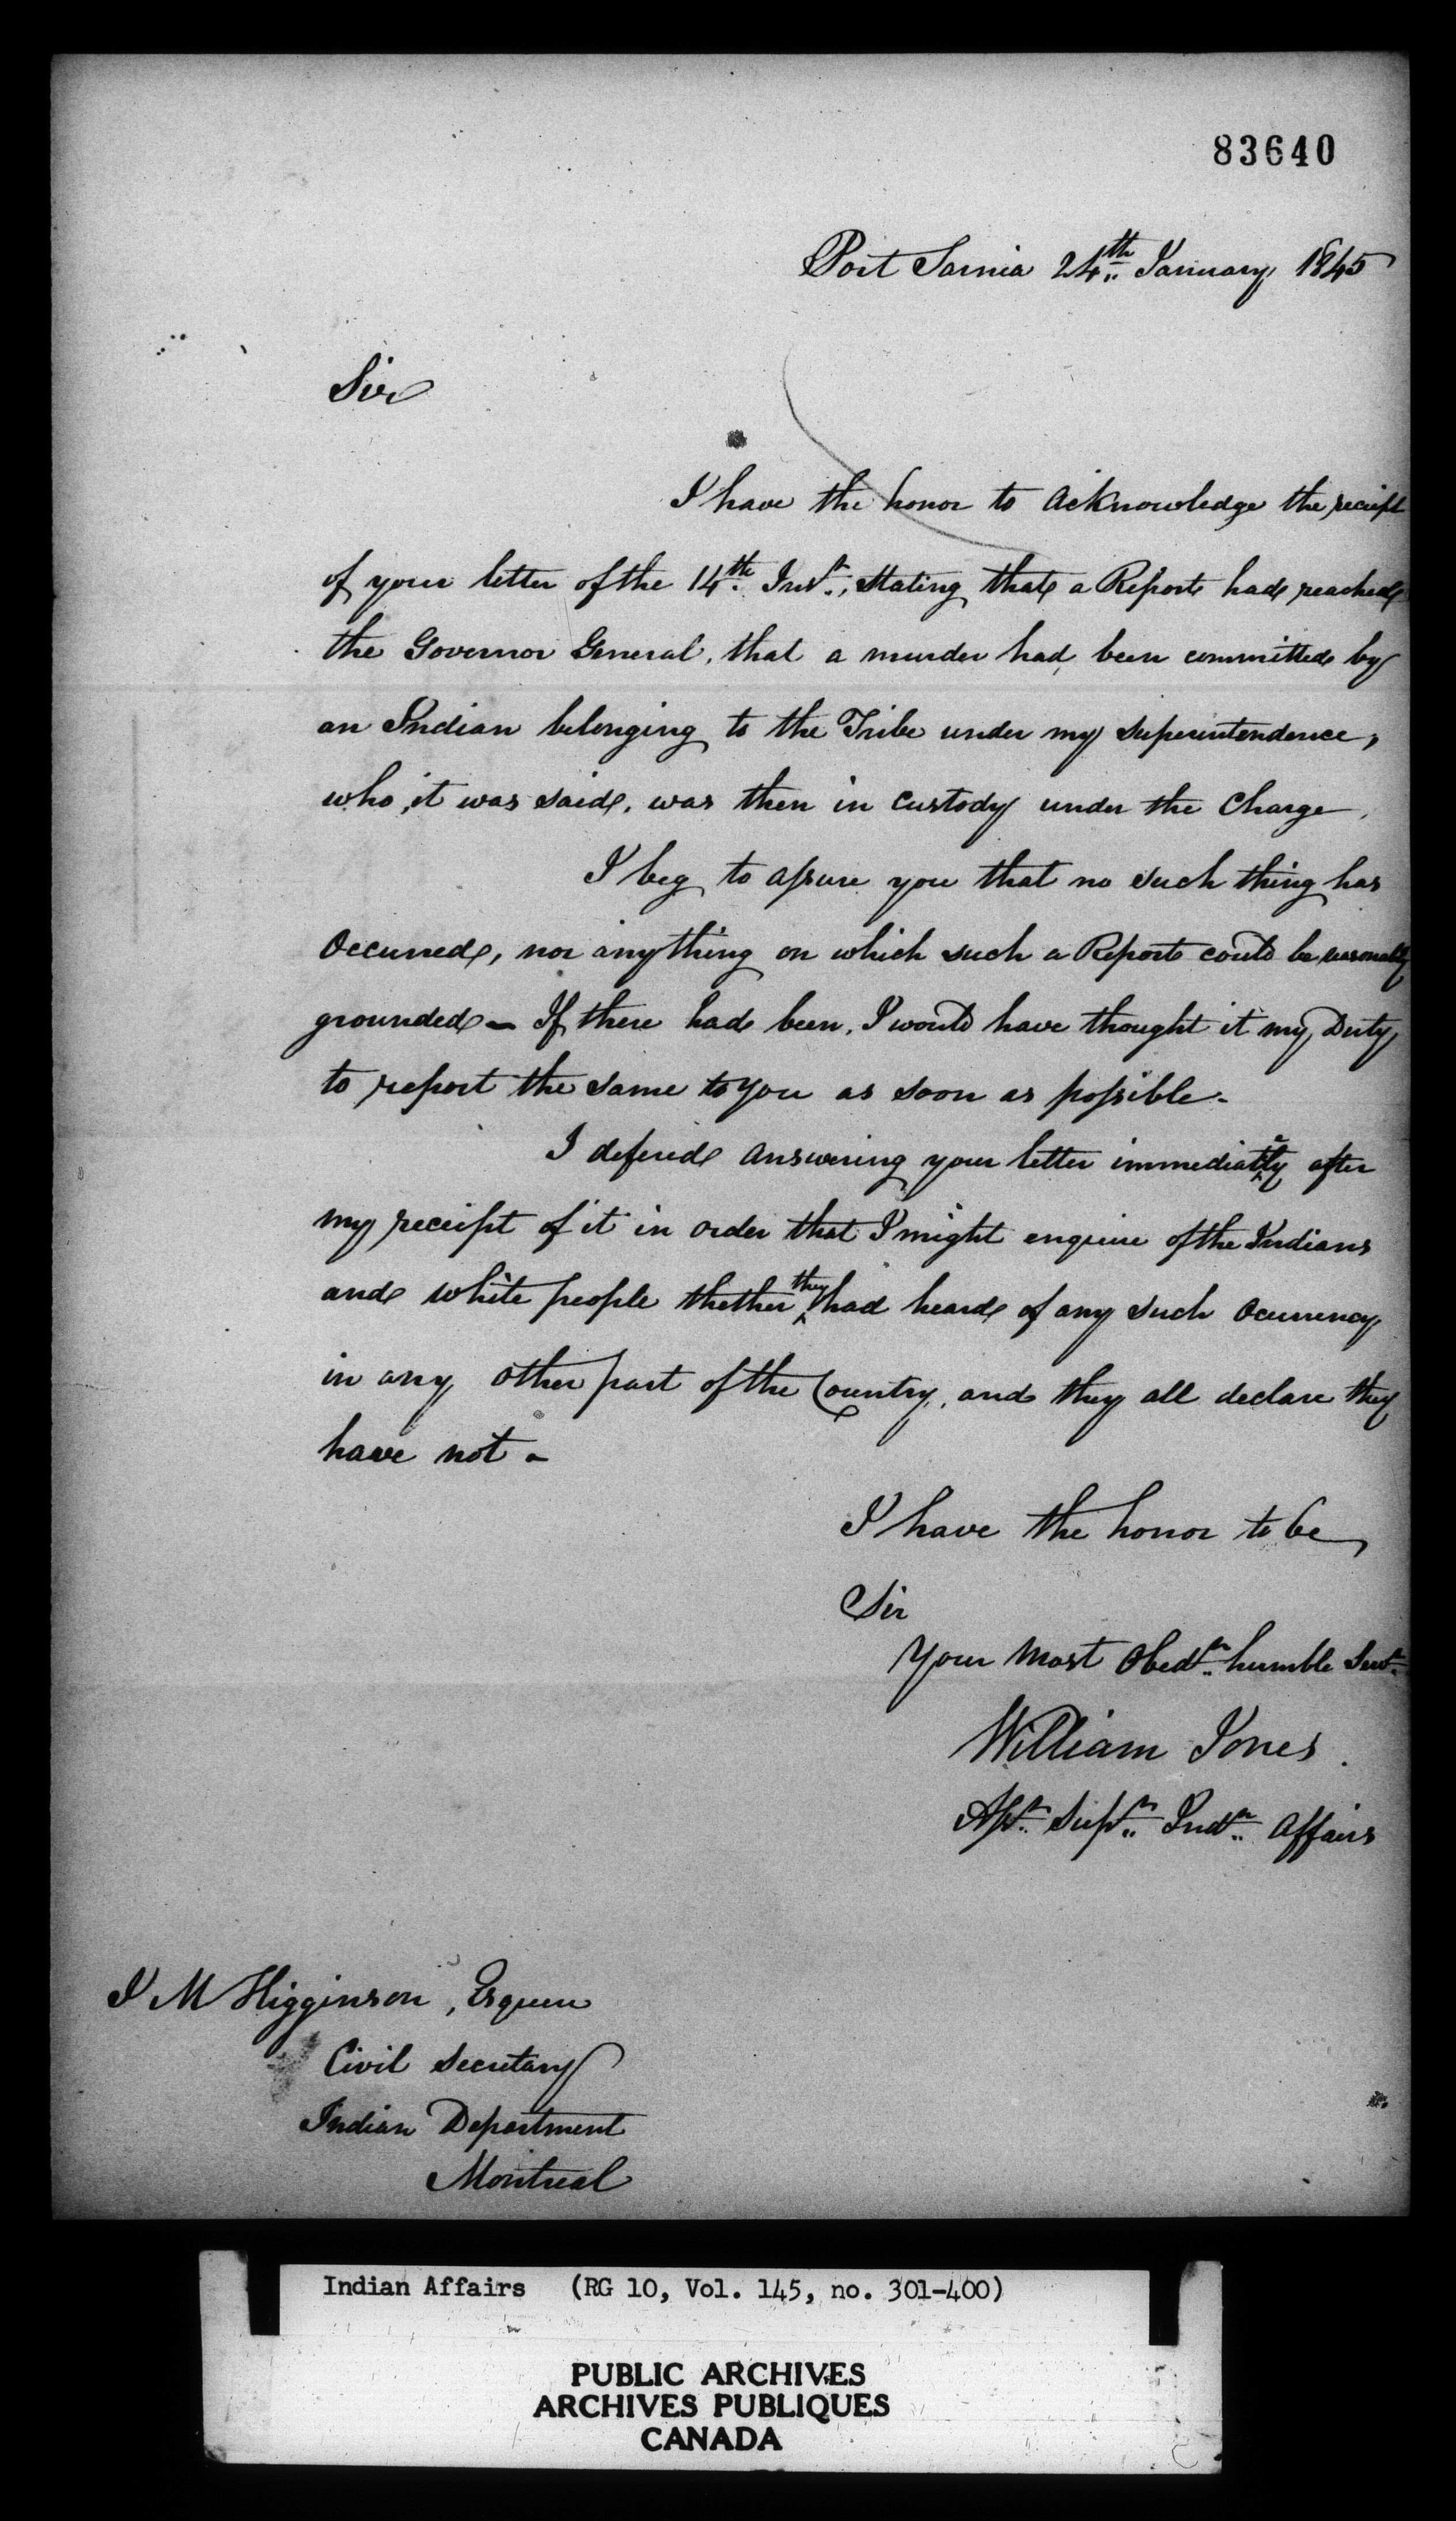 83640
Port Sarnia 24th January 1845
Sir
I have the honor to acknowledge the reciept
of your letter of the 14th Inst., stating that a Report had reached
the Governor General, that a murder had been committed by
an Indian belonging to the Tribe under my superintendence,
who, it was said, was then in custody under the Charge.
I beg to assure you that no such thing has
Occurred, nor anything on which such a Report could be reasonably
grounded - If there had been, I would have thought it my Duty
to report the same to you as soon as possible -
I defered answering your letter immediately after
my receipt of it in order that I might enquire of the Indians
and white people thether they had heard of any such Ocurrency
in any other part of the Country, and they all declare they
have not -
I have the honor to be
Sir
Your Most Obedt. humble Servt.
William Jones.
Asst. Supt. Indn. Affairs
J M Higginson, Esquire
Civil Secretary
Indian Department
Montreal
Indian Affairs (RG 10, Vol. 145, no. 301-400)
PUBLIC ARCHIVES
ARCHIVES PUBLIQUES
CANADA